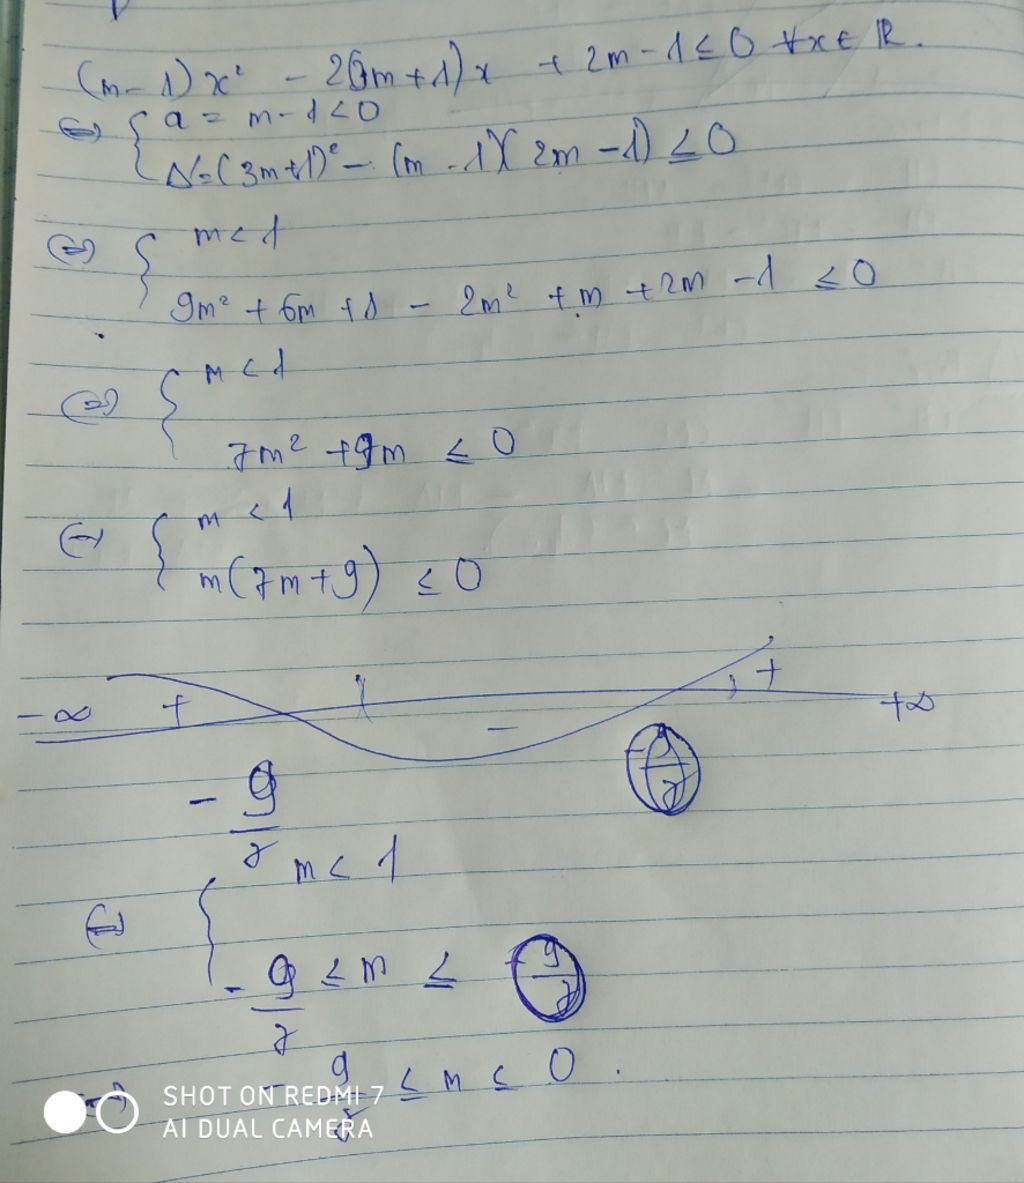 (m-1)x² - 2(3m+1)x + 2m-1 ≤ 0 ∀x ∈ R.
⇔ { a = m-1 < 0
Δ' = (3m+1)² - (m-1)(2m-1) ≤ 0
⇔ { m < 1
9m² + 6m + 1 - 2m² + m + 2m - 1 ≤ 0
⇔ { m < 1
7m² + 9m ≤ 0
⇔ { m < 1
m(7m+9) ≤ 0
-∞ + - + +∞
- 9/7
⇔ { m < 1
- 9/7 ≤ m ≤
⇔ - 9/7 ≤ m ≤ 0.
SHOT ON REDMI 7
AI DUAL CAMERA